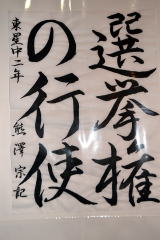 選挙権
の行使
東星中二年
熊澤宗記